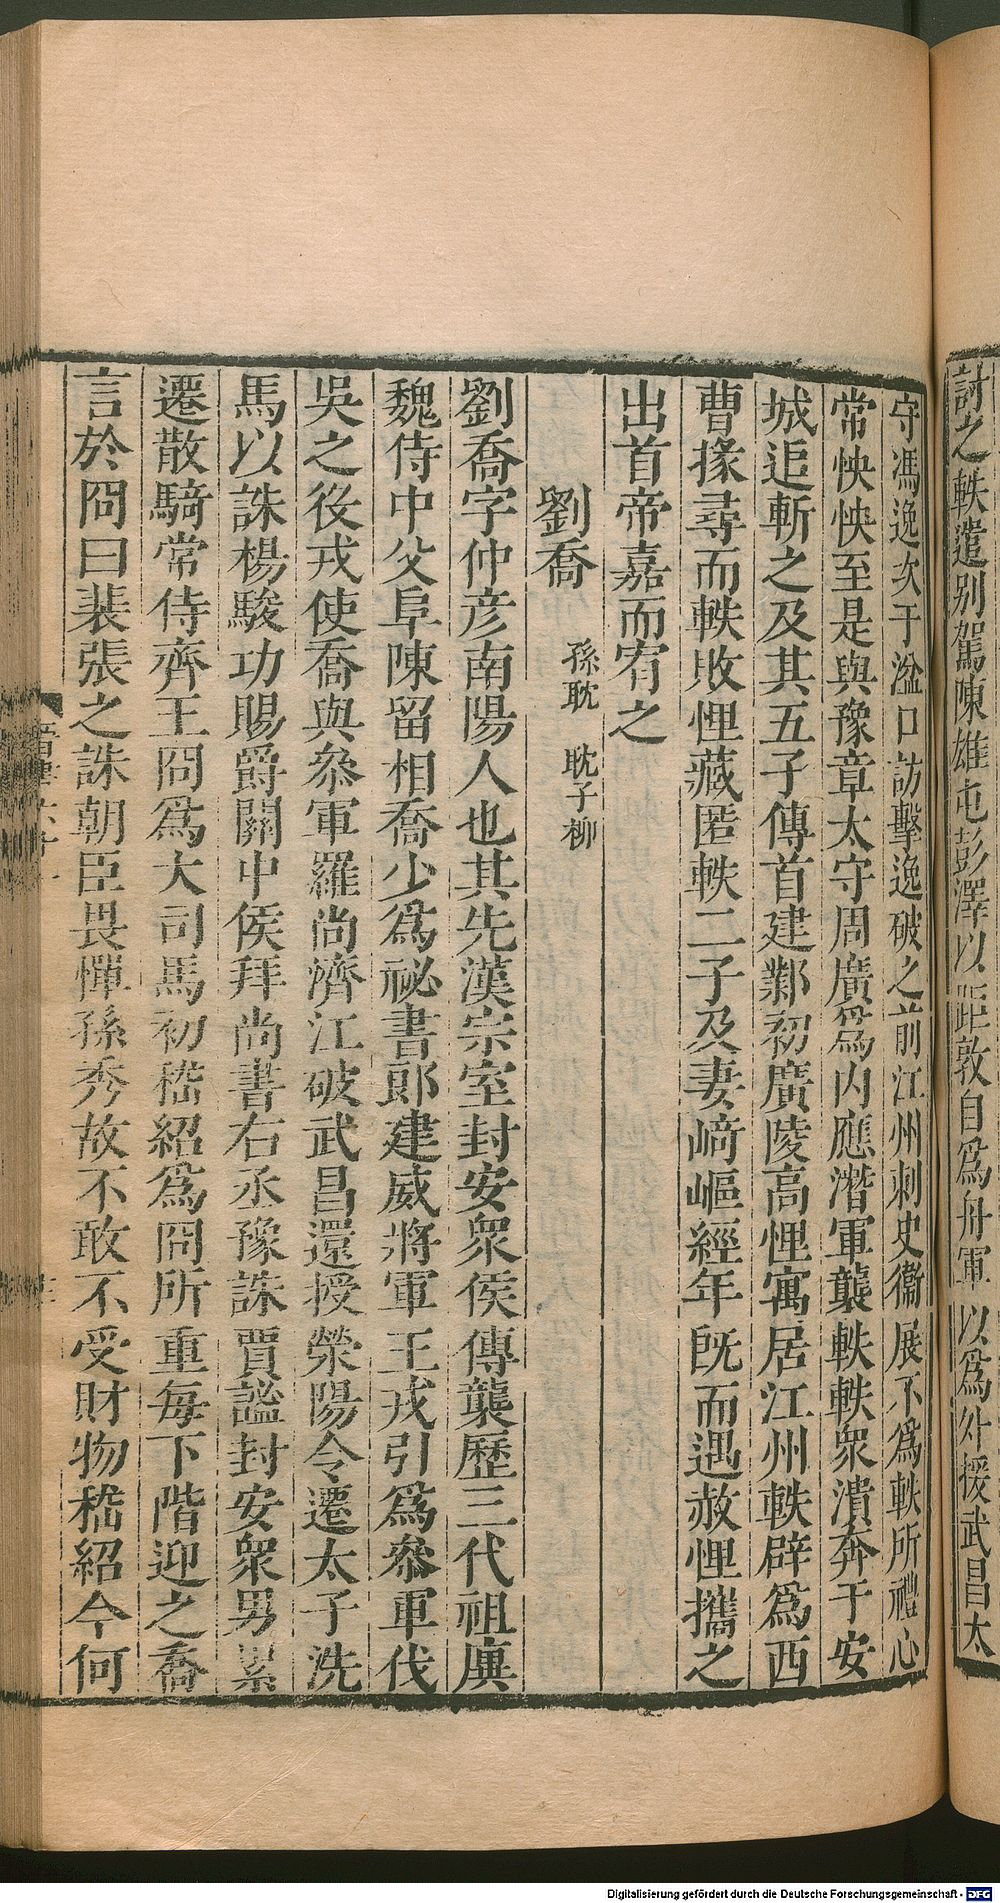 討之軼遣别駕陳雄屯彭澤以距敦自爲舟軍以爲外援武昌太
守馮逸次于湓口訪擊逸破之前江州刺史衞展不爲軼所禮心
常怏怏至是與豫章太守周廣爲内應潛軍襲軼軼衆潰奔于安
城追斬之及其五子傳首建鄴初廣陵高悝寓居江州軼辟爲西
曹掾尋而軼敗悝藏匿軼二子及妻崎嶇經年旣而遇赦悝攜之
出首帝嘉而宥之
劉喬 孫耽 耽子柳
劉喬字仲彦南陽人也其先漢宗室封安衆侯傳襲歷三代祖廙
魏侍中父阜陳留相喬少爲祕書郞建威將軍王戎引爲叅軍伐
吳之役戎使喬與叅軍羅尚濟江破武昌還授滎陽令遷太子洗
馬以誅楊駿功賜爵關中侯拜尚書右丞豫誅賈謐封安衆男累
遷散騎常侍齊王冏爲大司馬初嵇紹爲冏所重每下階迎之喬
言於冏曰裴張之誅朝臣畏憚孫秀故不敢不受財物嵇紹今何
Digitalisierung gefördert durch die Deutsche Forschungsgemeinschaft - DFG